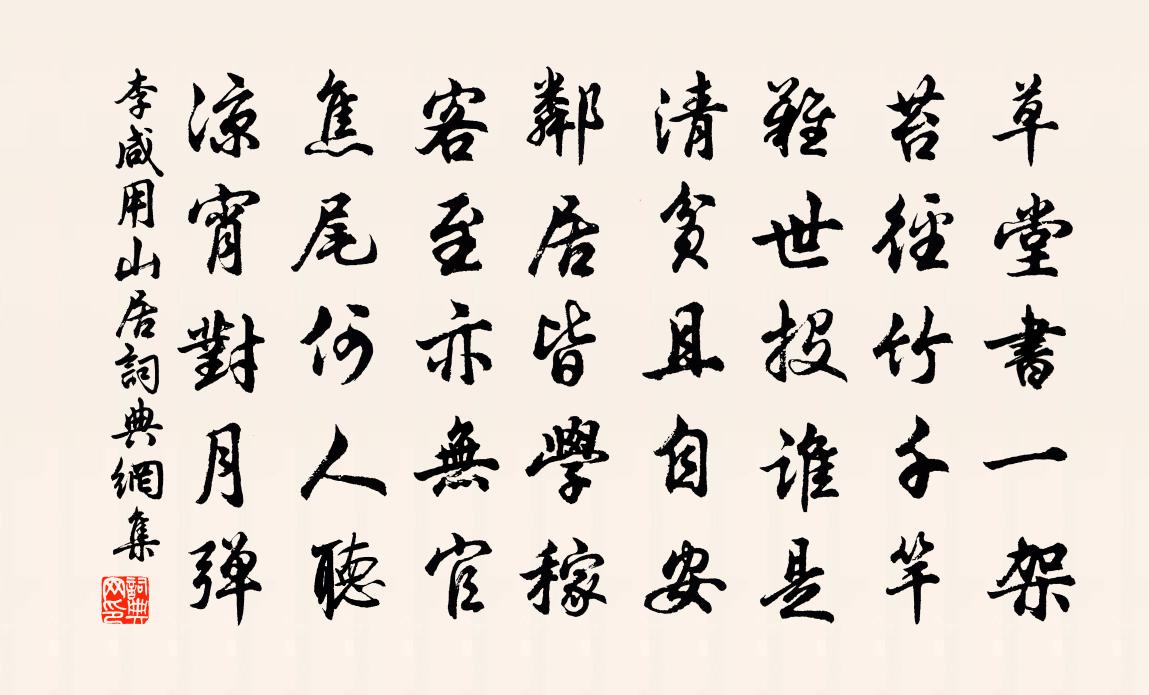 草堂書一架
苔徑竹千竿
難世投誰是
清貧且自安
鄰居皆學稼
客至亦無官
焦尾何人聽
涼宵對月彈
李咸用山居詞典網集
詞典網印